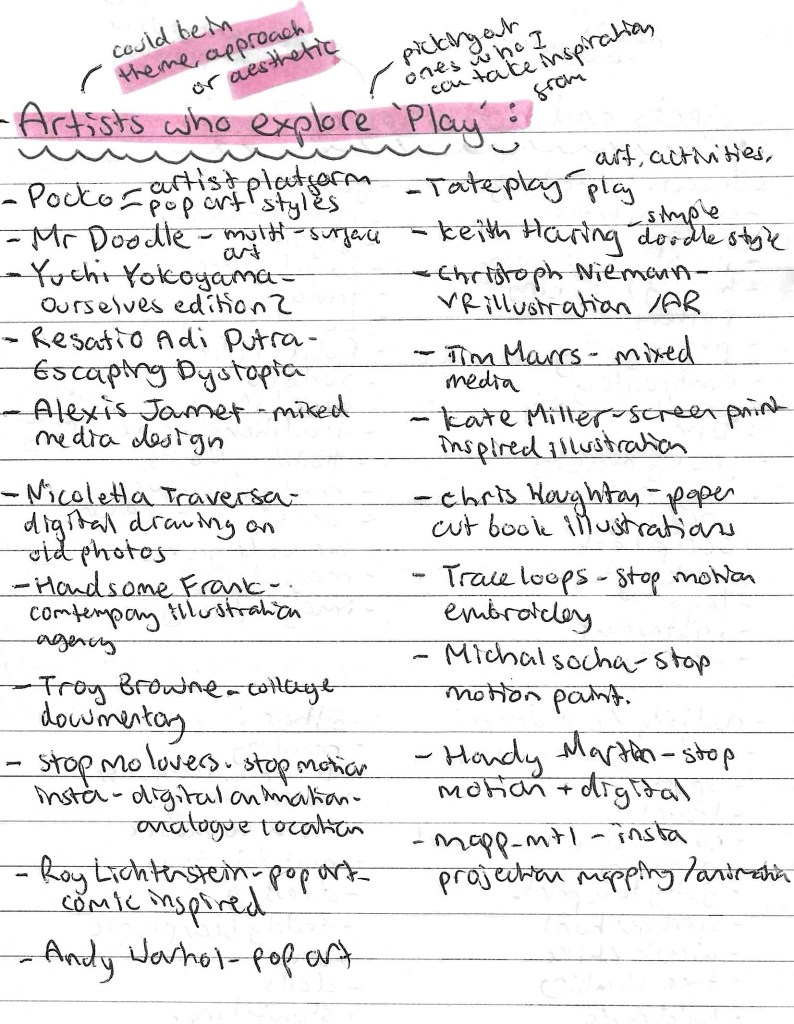 could be in
theme, approach
or aesthetic
picking out
ones who I
can take inspiration
from
- Artists who explore 'Play' :
- Pocko = artist platform
pop art styles
- Mr Doodle - multi-surface
art
- Yuchi Yokoyama -
ourselves edition 2
- Resatio Adi Putra -
Escaping Dystopia
- Alexis Jamet - mixed
media design
- Nicoletta Traversa -
digital drawing on
old photos
- Handsome Frank -
comtempary illustration
agency
- Troy Browne - collage
documentary
- stop mo lovers - stop motion
insta - digital animation -
analogue location
- Roy Lichtenstein - pop art -
comic inspired
- Andy Warhol - pop art
- Tate play - art, activities,
play
- Keith Haring - simple
doodle style
- Christoph Niemann -
VR illustration /AR
- Tim Marrs - mixed
media
- Kate Miller - screen print
inspired illustration
- Chris Haughton - paper
cut book illustrations
- Trace loops - stop motion
embroidey
- Michal socha - stop
motion paint.
- Handy Martin - stop
motion + digital
- mapp_mtl - insta
projection mapping /animation